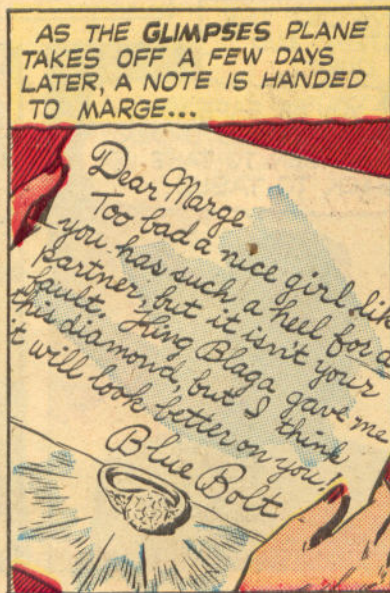 AS THE GLIMPSES PLANE
TAKES OFF A FEW DAYS
LATER, A NOTE IS HANDED
TO MARGE...
Dear Marge
Too bad a nice girl like
you has such a heel for a
partner, but it isn't your
fault. King Blaga gave me
this diamond, but I think
it will look better on you!
Blue Bolt